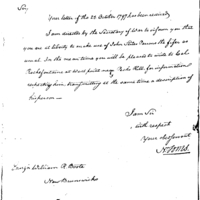 Sir,
Your letter of the 22 October 1797 has been received
I am directed by the Secretary of War to inform you that
you are at liberty to make use of John Peter the fifer as
usual. In the mean time you will be pleased to write to Lieut
at West point for information
respecting him & transmitting at the same time a description of
his person
I am Sir
with respect
your obt servant
N Jones
William R Boote
New Brunswick